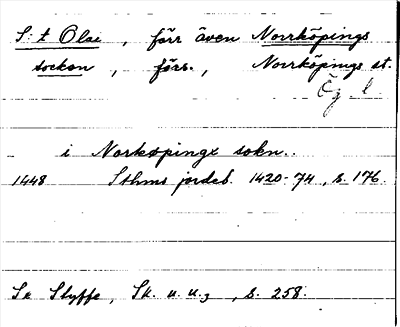 S:t Olai, förr även Norrköpings
socken, förs., Norrköpings st.
Ög l.
i Norkøpingx sokn..
1448 Sthms jordeb. 1420-74, s. 176.
Se Styffe, Sk. u. u.3, s. 258.